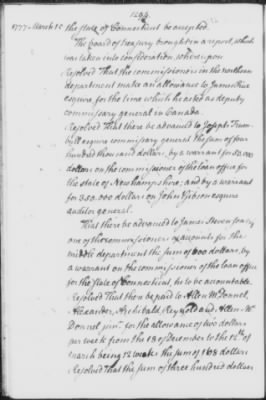 1244
1777. March 15 the state of Connecticut be accepted.
The board of treasury brought in a report, which
was taken into consideration, whereupon
Resolved That the commissioners in the northern
department make an allowance to James
esquire, for the time which he acted as deputy
commissary general in Canada.
Resolved That there be advanced to Joseph Trum
bull esquire commissary general the sum of four
hundred thousand dollars, by a warrant for 50.000
dollars on the commissioner of the loan office for
the state of Newhampshire; and by a warrant
for 350.000 dollars on John Gibson esquire
auditor general.
That there be advanced to James Stevenson
one of the commissioners of accounts for the
middle department the sum of 600 dollars, by
a warrant on the commissioner of the loan office
for the state of Connecticut, he to be accountable.
Resolved That there be paid to Allen McDonnel,
Alexander, Archibald, Reynold and Allen Mc
Donnel junr. for the allowance of two dollars
per week from the 18 of December to the 12th. of
March being 12 weeks the sum of 168 dollars
Resolved That the sum of three hundred dollars